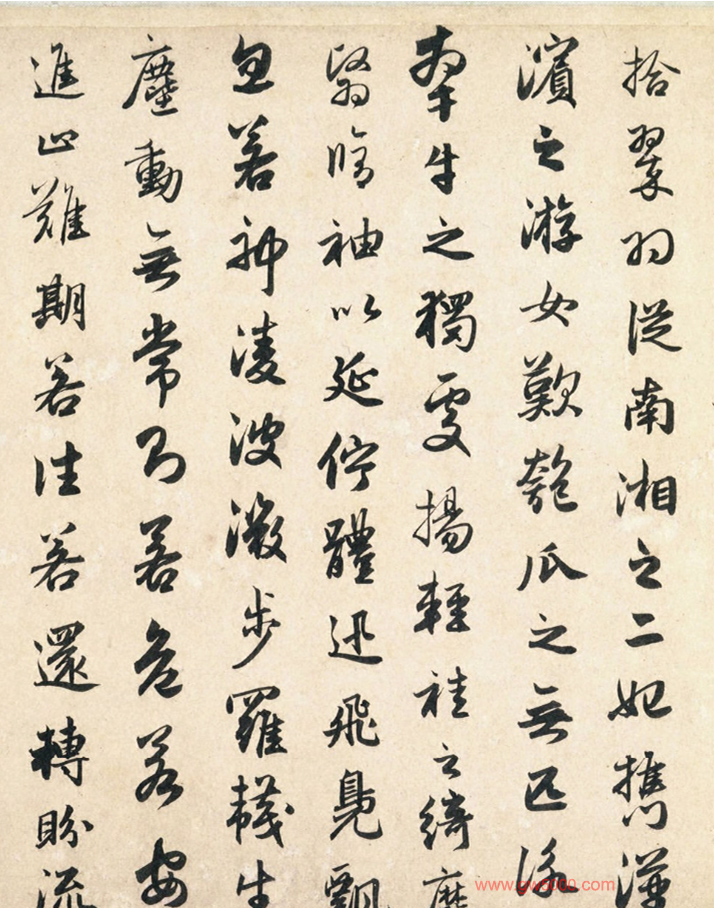 拾翠羽從南湘之二妃攜漢
濱之游女歎匏瓜之無匹詠
牽牛之獨處揚輕袿之綺靡
翳脩袖以延佇體迅飛鳧飄
忽若神淩波微步羅韈生
塵動無常則若危若安
進止難期若往若還轉盼流